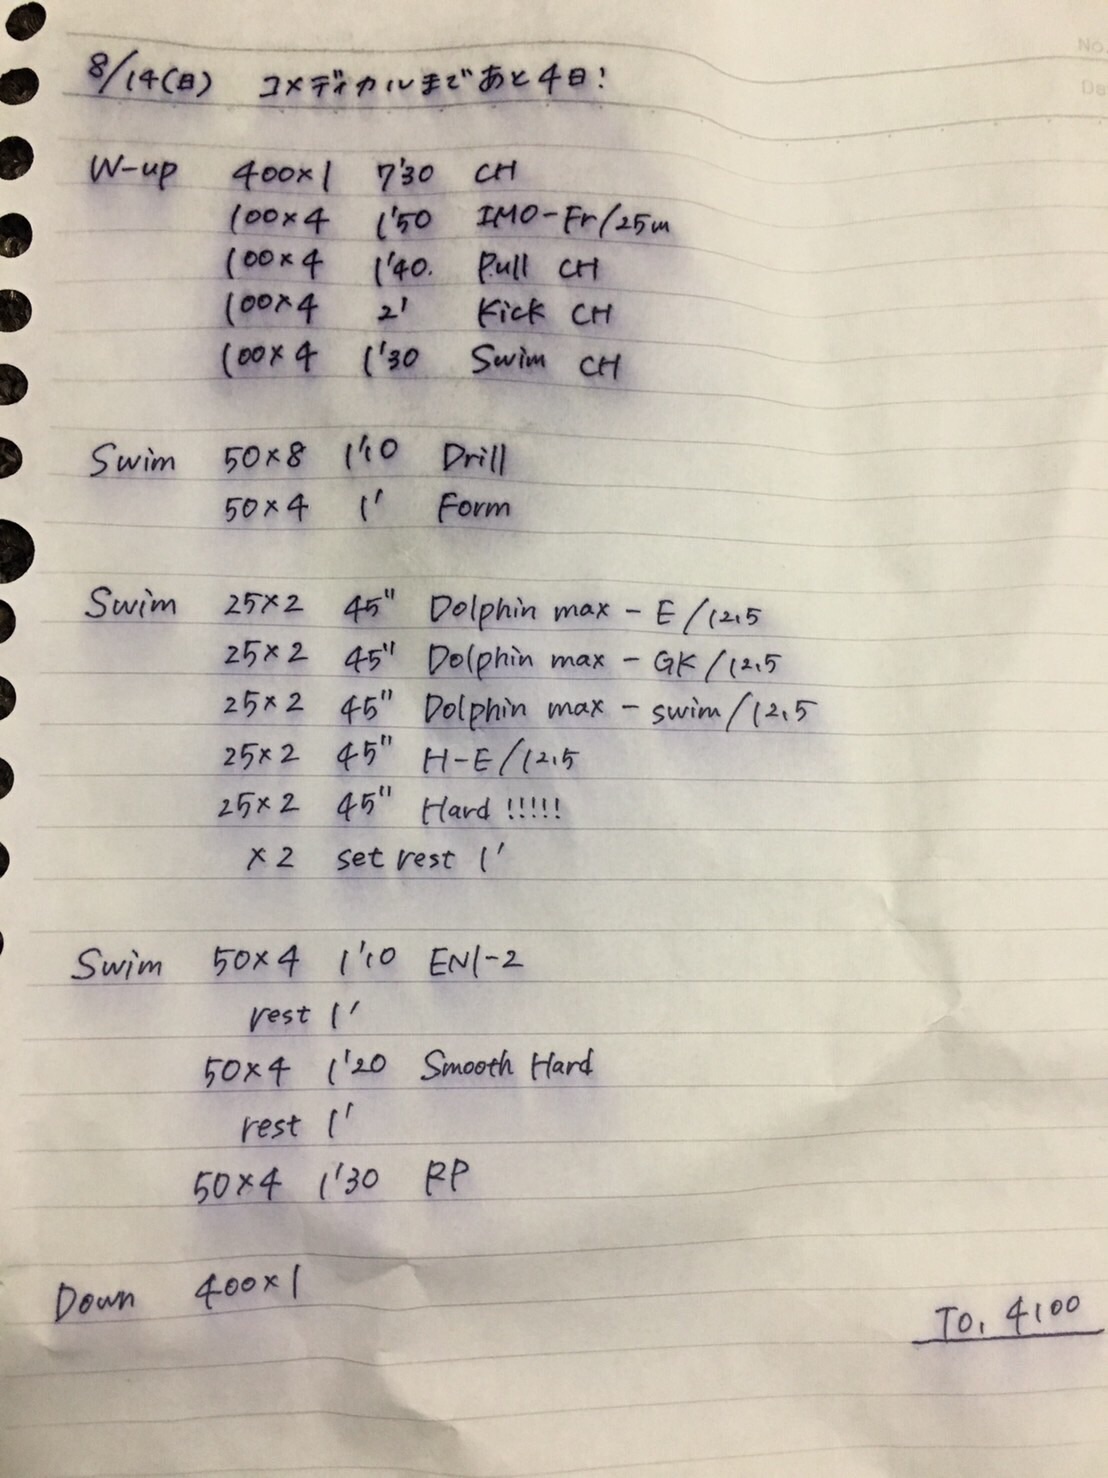 No.
Da
8/14(日) コメディカルまであと4日!
W-up 400×1 7'30 CH
100×4 1'50 IMO-Fr/25m
100×4 1'40. Pull CH
100×4 2' Kick CH
100×4 1'30 Swim CH
Swim 50×8 1'10 Drill
50×4 1' Form
Swim 25×2 45" Dolphin max - E/12.5
25×2 45" Dolphin max - GK/12.5
25×2 45" Dolphin max - swim/12.5
25×2 45" H-E/12.5
25×2 45" Hard!!!!!
×2 set rest 1'
Swim 50×4 1'10 EN1-2
rest 1'
50×4 1'20 Smooth Hard
rest 1'
50×4 1'30 RP
Down 400×1
TO. 4100